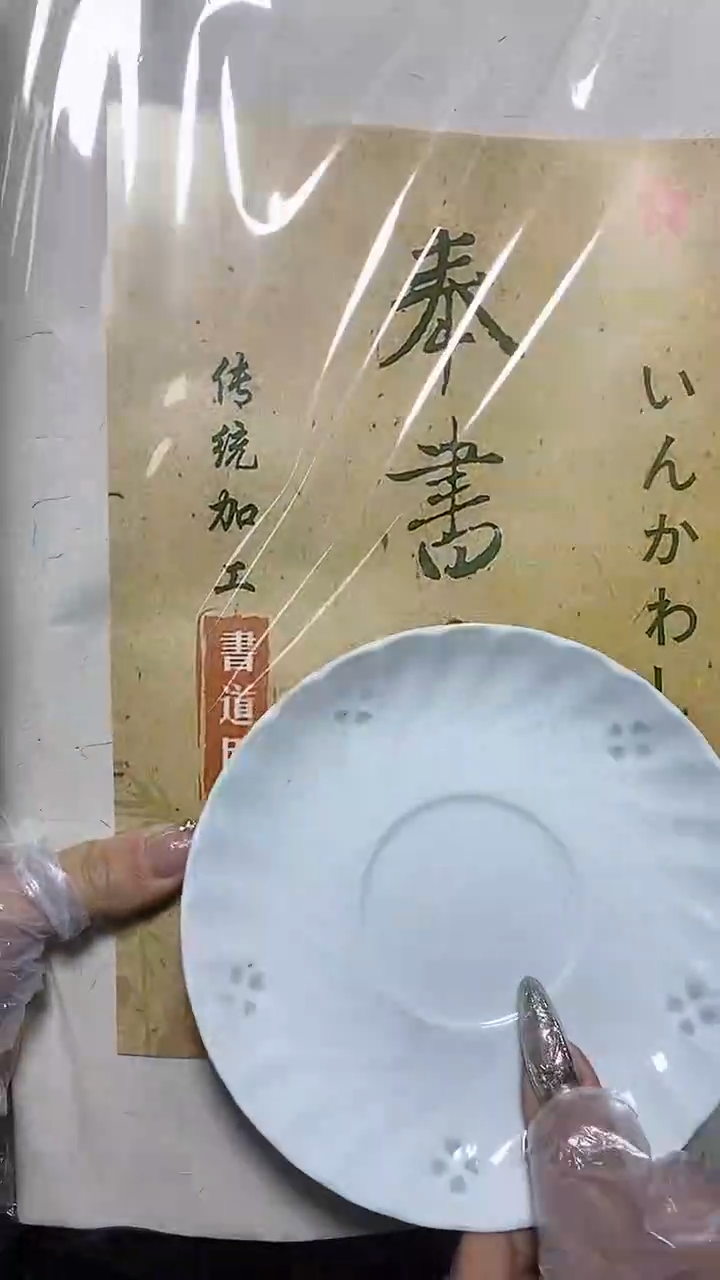 いんかわし
奉書
传统加工
書道用